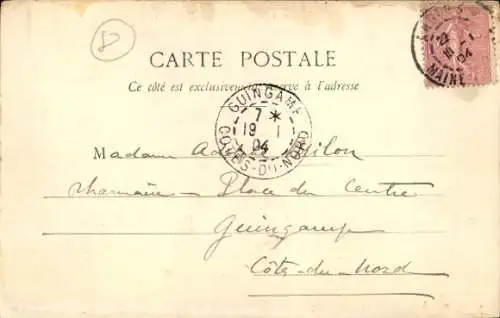 CARTE POSTALE
Ce côté est exclusivement réservé à l'adresse
GUINGAMP
7 *
19 1
04
CÔTES-DU-NORD
22
18 1
04
MAINE
Madame
Place du Centre
Guingamp
Côtes-du-Nord